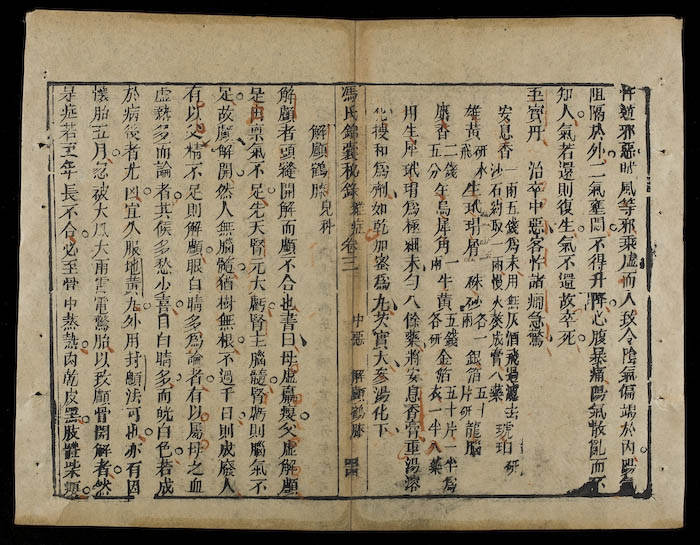 忤逆邪惡賊風等邪乘虛而入致令陰氣偏竭於內陽氣
阻隔於外二氣壅閉不得升降心腹暴痛陽氣散亂而不
知人氣若還則復生氣不還故卒死
至寳丹 治卒中惡客忤諸癇急驚
安息香 一兩五錢為末用無灰酒飛過濾去沙石約取一兩慢火熬成膏入藥 琥珀 研
雄黃 研水飛 生玳瑁 屑 硃砂 各一兩 銀箔 五十片研 龍腦
麝香 二錢五分 生烏犀角 一兩 牛黃 五錢各研 金箔 五十片一半為衣一半入藥
用生犀玳瑁為極細末勻入餘藥將安息香膏重湯溶
化搜和為劑如乾加蜜為丸芡實大參湯化下
馮氏錦囊秘錄 雜症 卷三 中惡 解顱鶴膝 四
解顱鶴膝 兒科
解顱者頭縫開解而顱不合也書曰母虛羸裂父虛解顱
是由禀氣不足先天腎元大虧腎主腦髓腎虧則腦氣不
足故顱解開然人無腦髓猶樹無根不過千日則成廢人
有以父精不足則解顱眼白睛多為論者有以屬母之血
虛熱多而論者其候多愁少喜目白睛多而㿠白色若成
於病後者尤凶宜久服地黃丸外用封顱法可也亦有因
懷胎五月忽被大風大雨雷電驚胎以致顱骨開解者然
是症若至年長不合必至骨中蒸熱肉乾皮黑肢體柴瘦